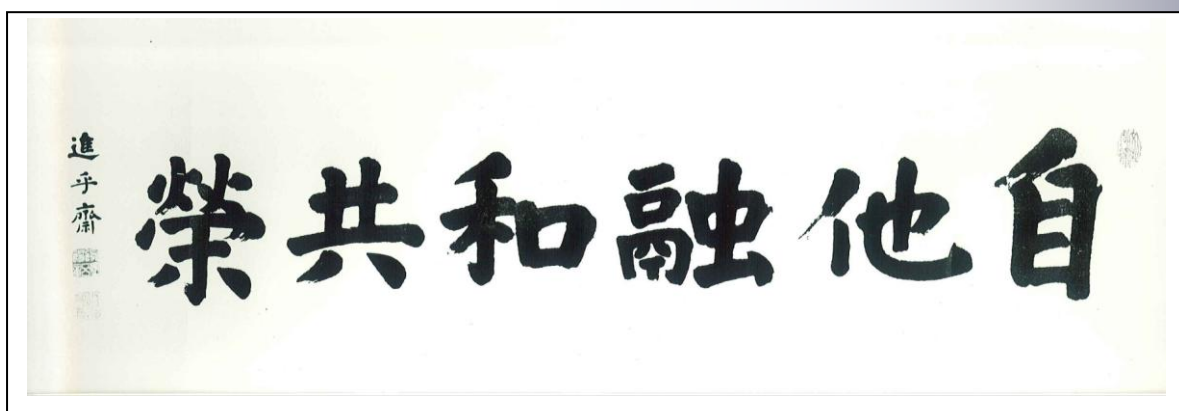 自他融和共榮
進乎齋